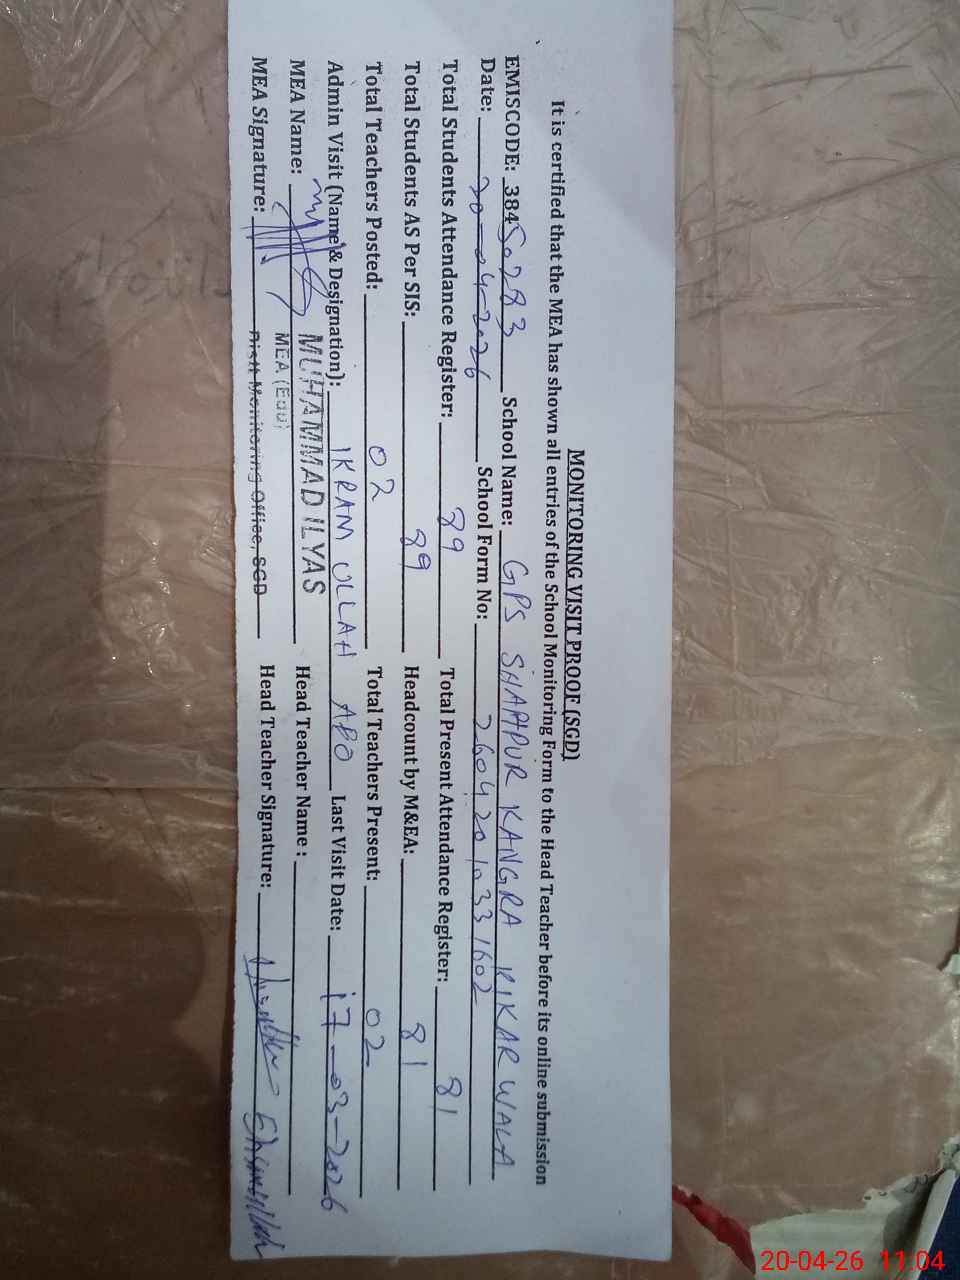 MONITORING VISIT PROOF (SGD)
It is certified that the MEA has shown all entries of the School Monitoring Form to the Head Teacher before its online submission
EMISCODE: 38450283 School Name: GPS SHAHPUR KANGRA KIKAR WALA
Date: 20-04-2026 School Form No: 26042010331602
Total Students Attendance Register: 89 Total Present Attendance Register: 81
Total Students AS Per SIS: 89 Headcount by M&EA: 81
Total Teachers Posted: 02 Total Teachers Present: 02
Admin Visit (Name & Designation): IKRAM ULLAH AEO Last Visit Date: 17-03-2026
MEA Name: MUHAMMAD ILYAS Head Teacher Name :
MEA (Edu)
MEA Signature: Distt Monitoring Office, SGD Head Teacher Signature:
20-04-26 11:04